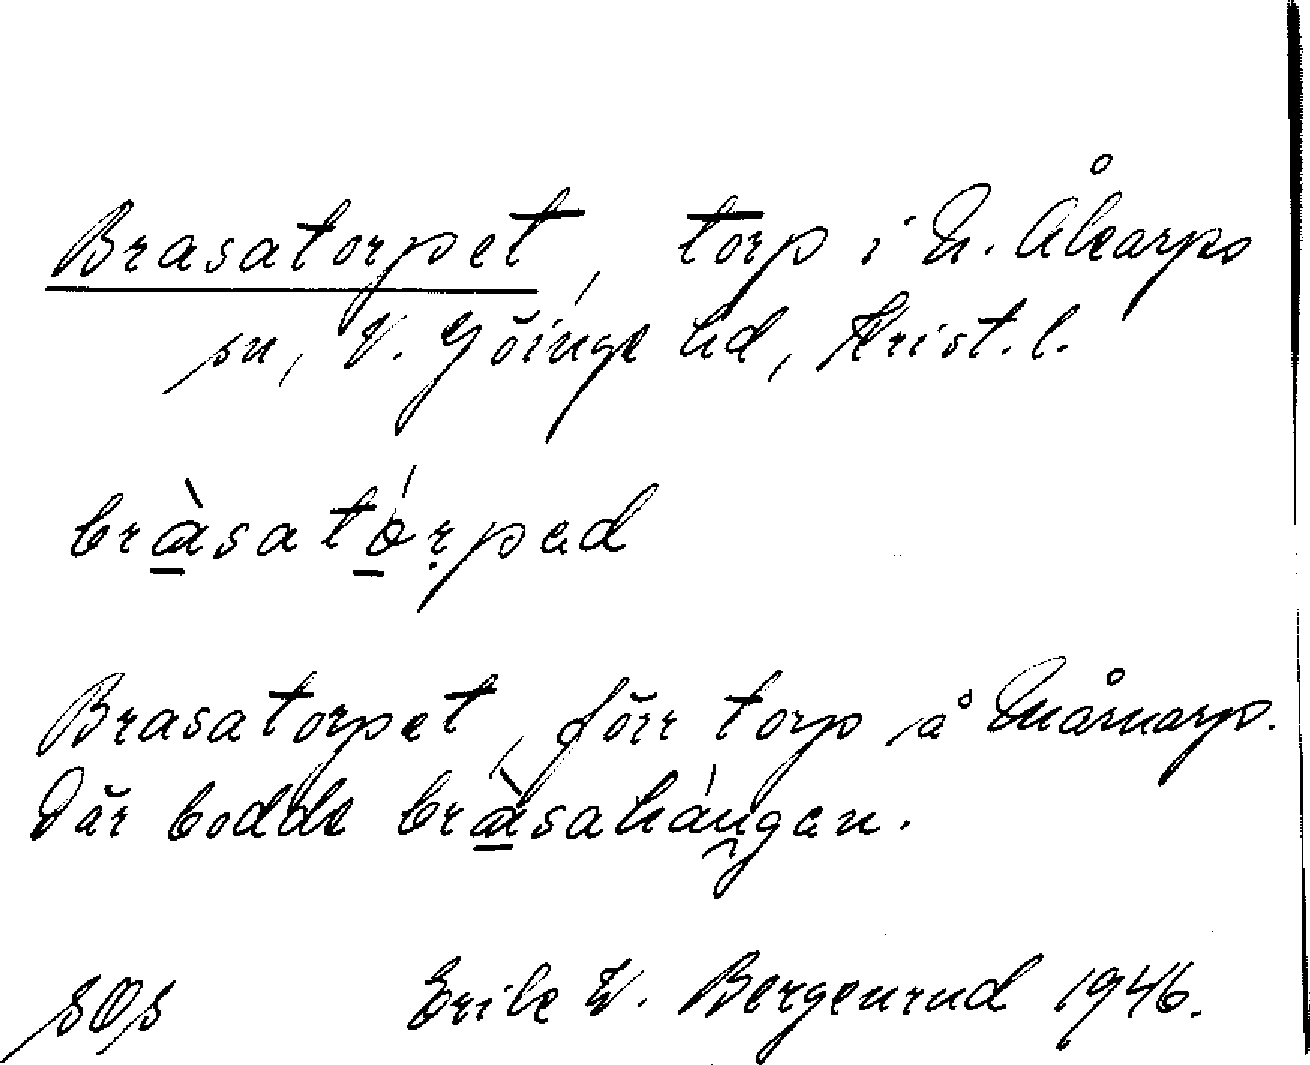 Brasatorpet, torp i N. Åkarps
sn, V. Göinge hd, Krist. l.
bràsatórpad
Brasatorpet, förr torp å Mårnarp.
Där bodde bràsahángen.
SOS Erik W. Bergenrud 1946.